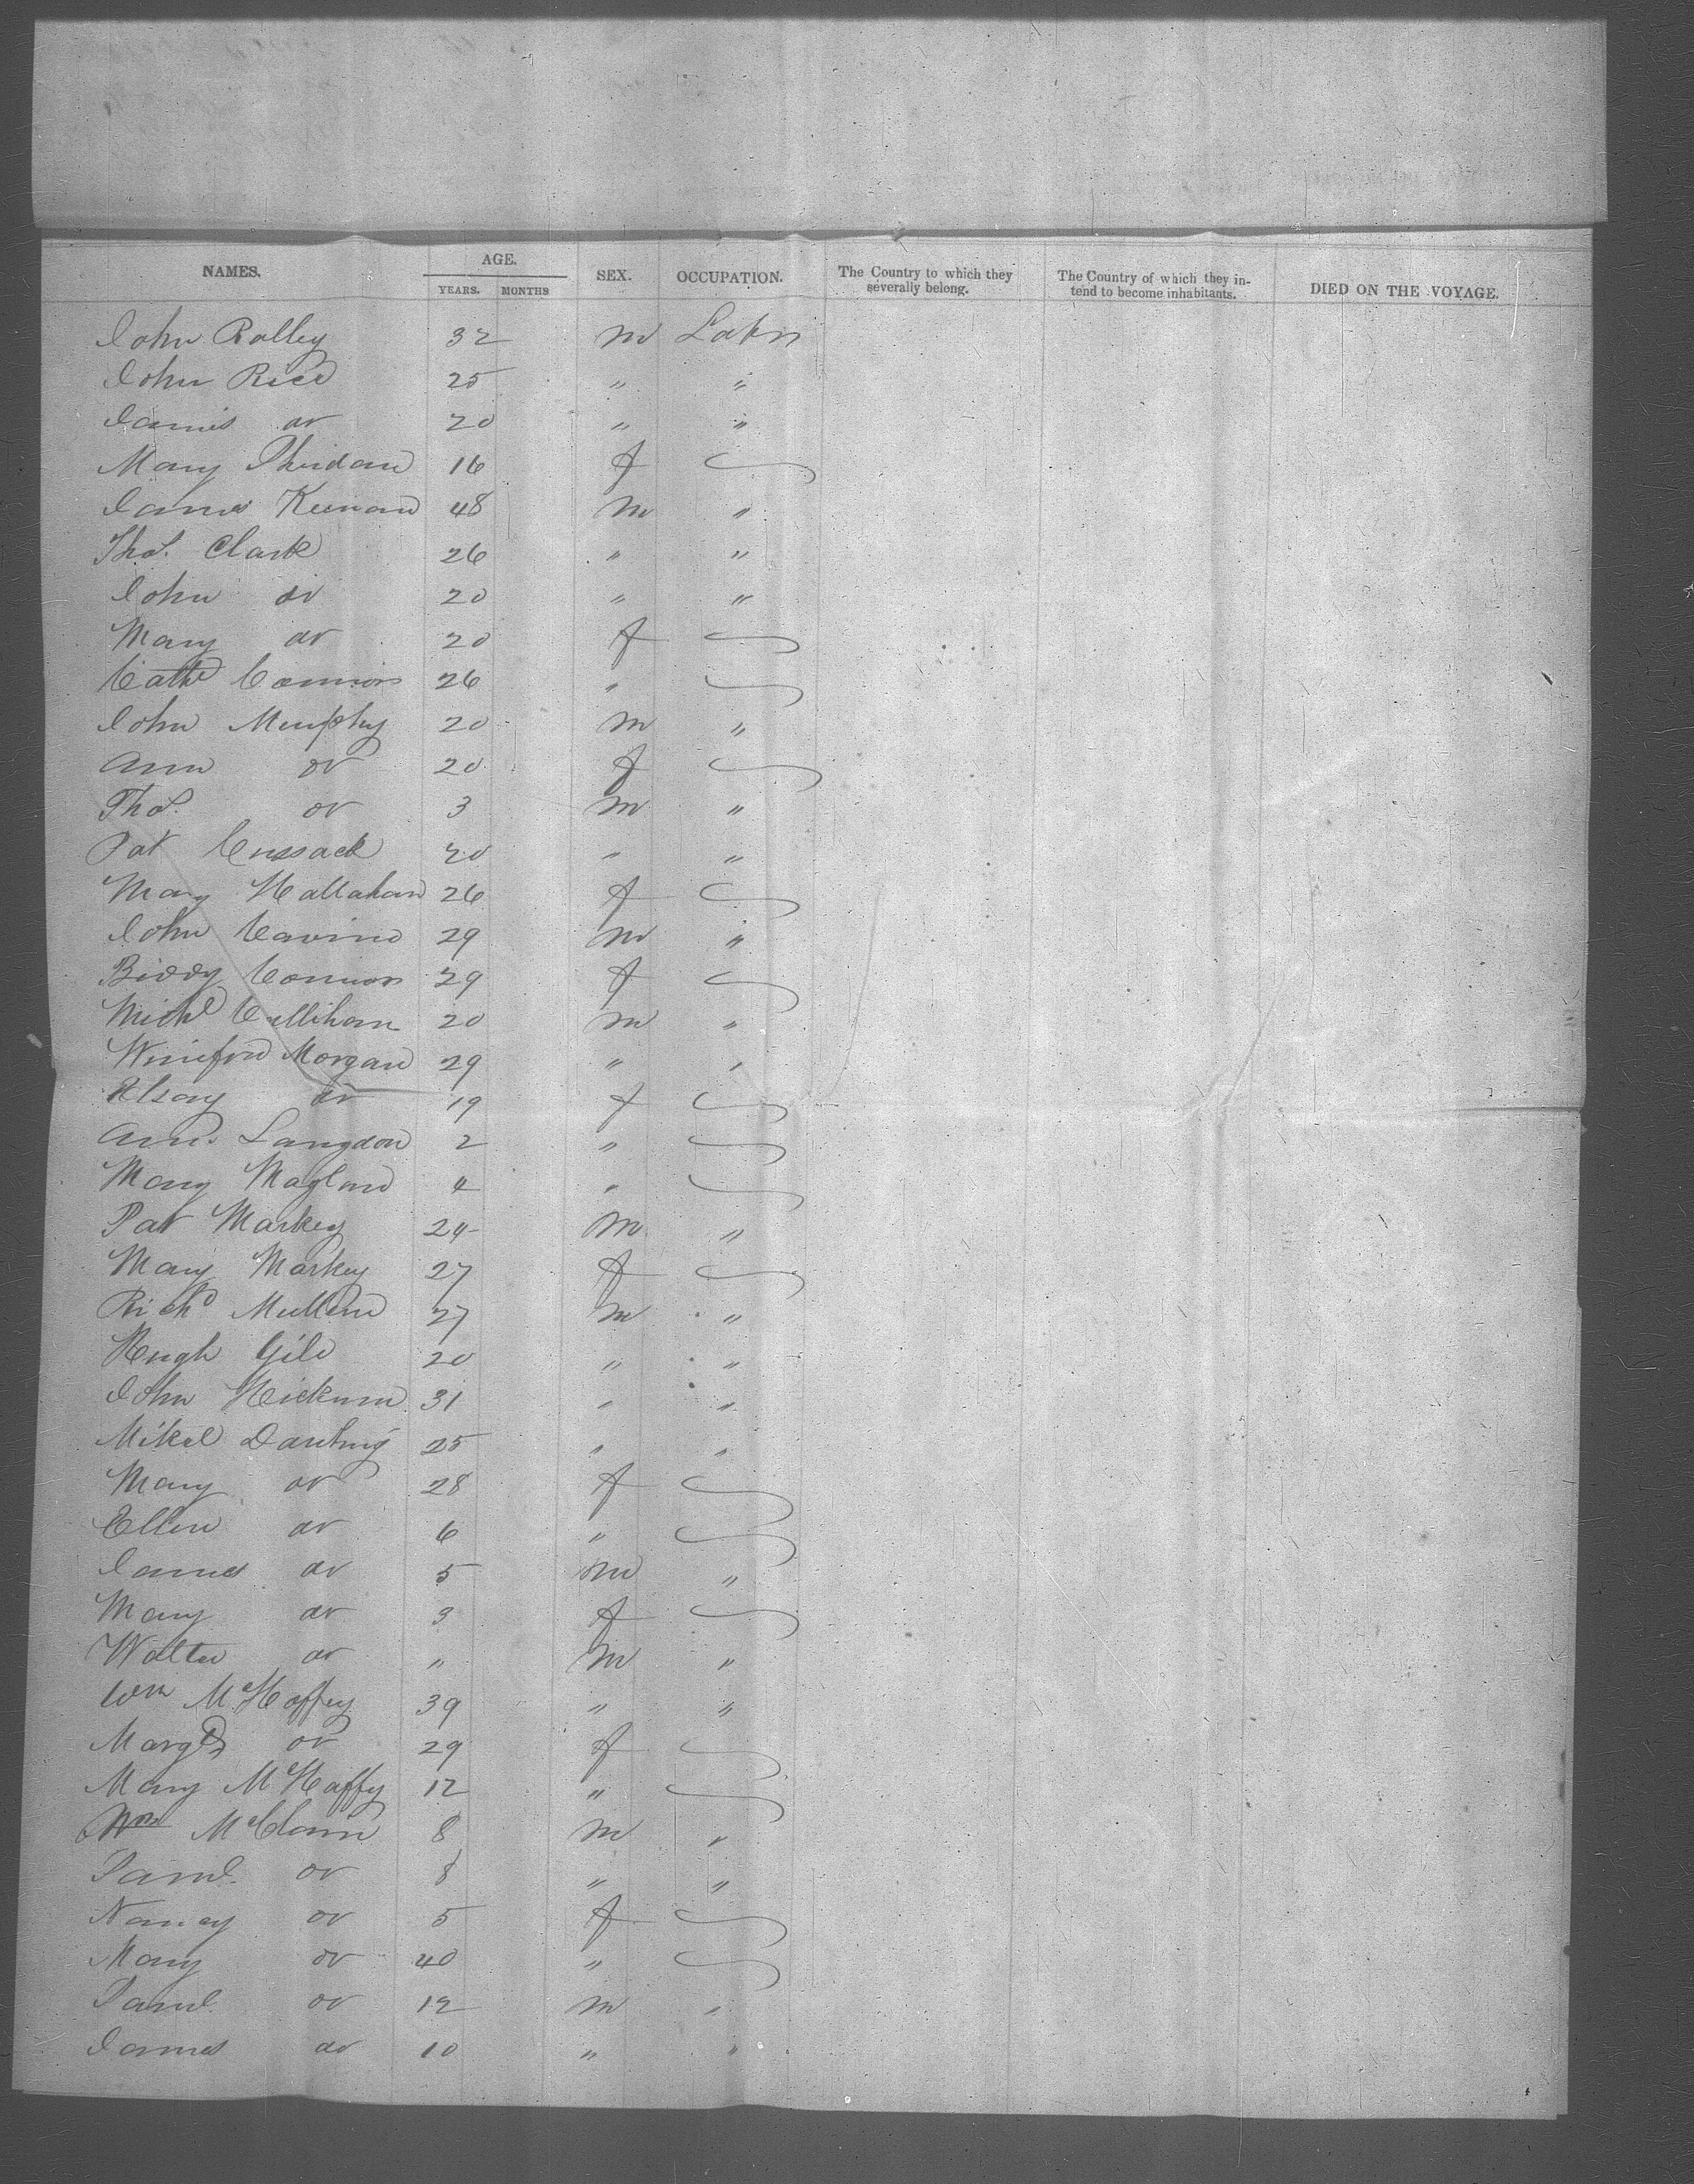 NAMES. AGE. YEARS. MONTHS SEX. OCCUPATION. The Country to which they severally belong. The Country of which they intend to become inhabitants. DIED ON THE VOYAGE.
John Rolley 32 m Labr
John Rice 25 " "
James do 20 " "
Mary Sheridan 16 f
James Keenan 48 m "
Thos. Clark 26 " "
John do 20 " "
Mary do 20 f
Cath Connors 26 "
John Murphy 20 m "
Ann do 20 f
Thos. do 3 m "
Pat Cussack 20 " "
Mary Hallahan 26 f
John 29 m "
Biddy Connors 29 f
Michl Cullihan 20 m "
Winifred Morgan 29 " "
do 19 f
Ann Langdon 2 "
Mary 4 "
Pat Markey 24 m "
Mary Markey 27 f
Richd Mullen 27 m "
Hugh Gile 20 " "
John Hickman 31 " "
Mikel 25 " "
Mary do 28 f
Ellen do 6 "
James do 5 m "
Mary do 3 f
Walter do " m "
Wm McHaffey 39 " "
Margt do 29 f
Mary McHaffy 12 "
Wm McClann 8 m "
Saml. do 8 " "
Nancy do 5 f
Mary do 40 "
Saml. do 12 m "
James do 10 " "